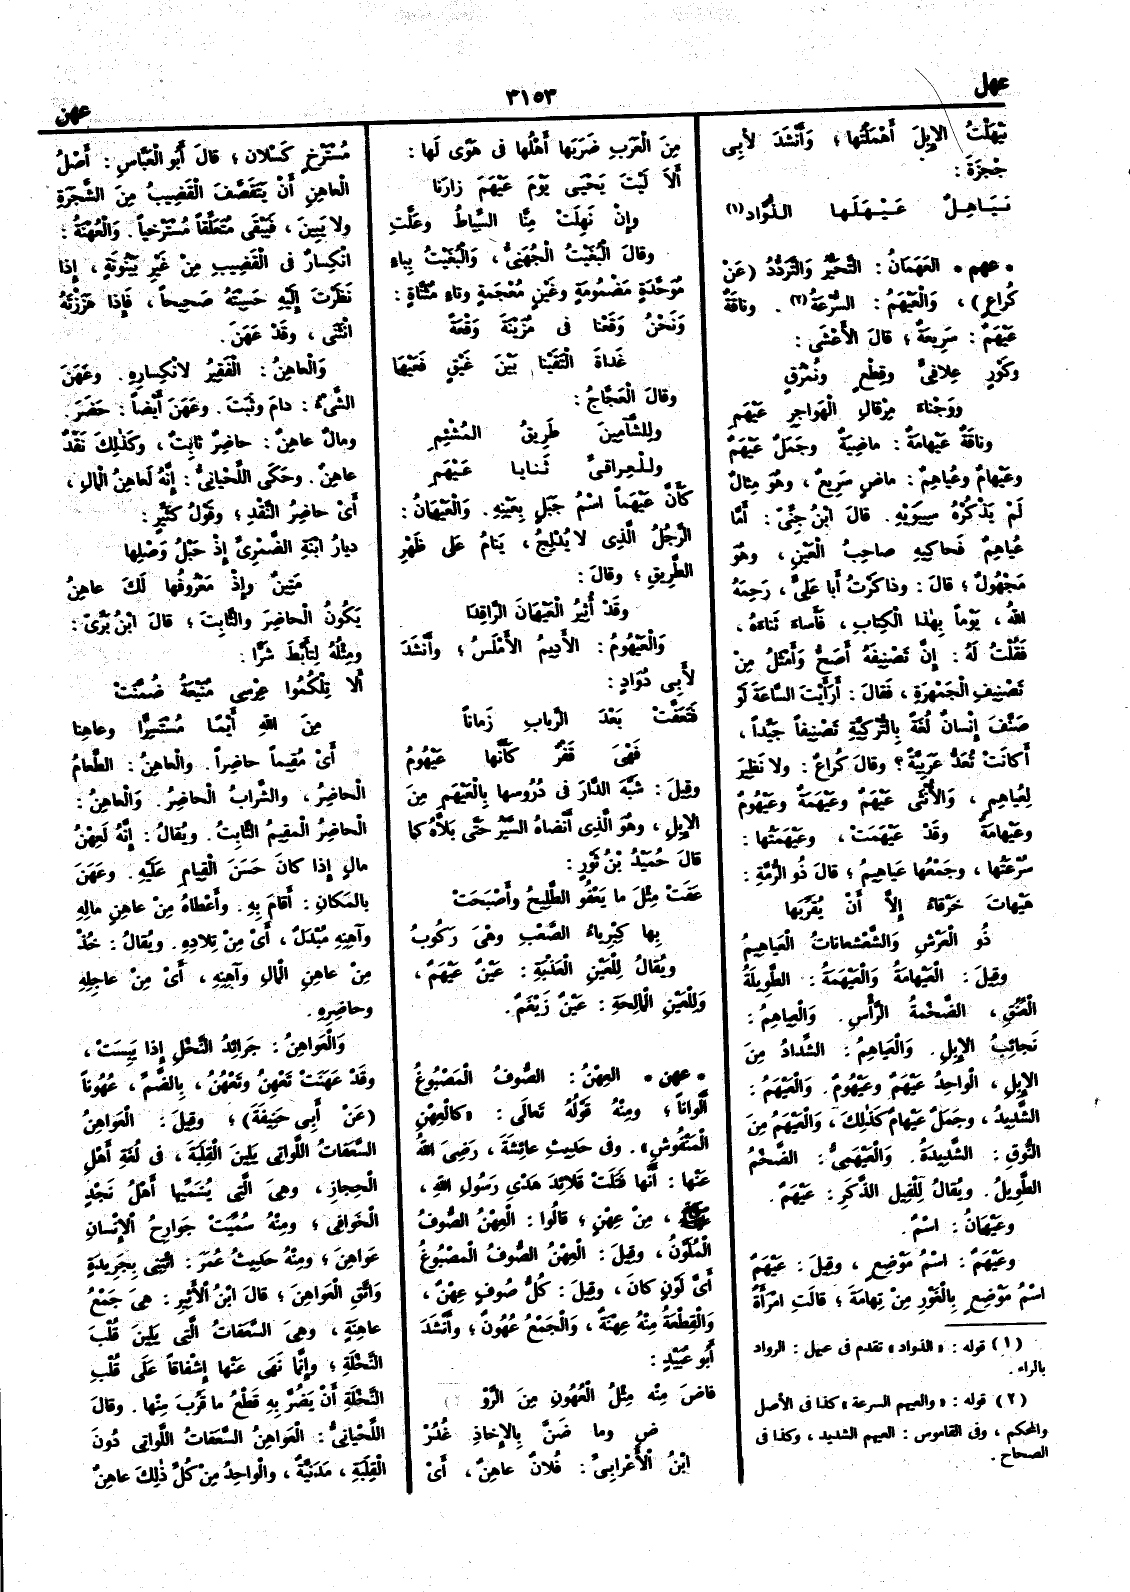 عهل
٣١٥٣
عهن
عَيْهَلْتُ الإِبِلَ أَهْمَلْتُها ؛ وَأَنْشَدَ لأَبِى
وَجْزَةَ :
عَيَاهِلٌ عَيْهَلَها الذُّوَّاد(١)
* عهم * العَهَمَانُ : التَّحَيُّرُ وَالتَّرَدُّدُ (عَنْ
كُراعٍ) ، وَالْعَيْهَمُ : السُّرْعَةُ(٢) . وناقَةٌ
عَيْهَمٌ : سَرِيعَةٌ ؛ قالَ الأَعْشَى :
وَكُورٍ عِلافِىٍّ وقِطْعٍ ونُمْرُقٍ
ووَجْناءَ مِرْقالِ الْهَواجِرِ عَيْهَمِ
وناقَةٌ عَيْهامَةٌ : ماضِيَةٌ وجَمَلٌ عَيْهَمٌ
وعَيْهامٌ وعُياهِمٌ : ماضٍ سَرِيعٌ ، وهُوَ مِثالٌ
لَمْ يَذْكُرْهُ سِيبَوَيْهِ. قالَ ابْنُ جِنِّىٍّ : أَمَّا
عُياهِمٌ فَحاكِيهِ صاحِبُ الْعَيْنِ ، وهُوَ
مَجْهُولٌ ؛ قالَ : وذاكَرْتُ أَبا عَلىٍّ ، رَحِمَهُ
اللهُ ، يَوْماً بِهٰذا الْكِتابِ ، فَأَساءَ ثَناءَهُ ،
فَقُلْتُ لَهُ : إِنَّ تَصْنِيفَهُ أَصَحُّ وَأَمْثَلُ مِنْ
تَصْنِيفِ الْجَمْهَرَةِ ، فَقالَ : أَرَأَيْتَ السَّاعَةَ لَوْ
صَنَّفَ إِنْسانٌ لُغَةً بِالتُّرْكِيَّةِ تَصْنِيفاً جَيِّداً ،
أَكانَتْ تُعَدُّ عَرَبِيَّةً ؟ وقالَ كُراعٌ : ولا نَظِيرَ
لِعُياهِمٍ ، وَالأُنْثَى عَيْهَمٌ وعَيْهَمَةٌ وعَيْهُومٌ
وعَيْهامَةٌ وقَدْ عَيْهَمَتْ ، وعَيْهَمَتُها :
سُرْعَتُها ، وجَمْعُها عَياهِيمُ ؛ قالَ ذُو الرُّمَّةِ :
هَيْهاتَ خَرْقاءُ إِلاَّ أَنْ يُقَرِّبَها
ذُو الْعَرْشِ وَالشَّعْشَعاناتُ الْعَياهِيمُ
وقِيلَ : الْعَيْهامَةُ وَالْعَيْهَمَةُ : الطَّوِيلَةُ
الْعُنُقِ ، الضَّخْمَةُ الرَّأْسِ. وَالْعَياهِمُ :
نَجائِبُ الإِبِلِ. وَالْعَياهِمُ : الشِّدادُ مِنَ
الإِبِلِ ، الْواحِدُ عَيْهَمٌ وعَيْهُومٌ. وَالْعَيْهَمُ :
الشَّدِيدُ ، وجَمَلٌ عَيْهامٌ كَذٰلِكَ ، وَالْعَيْهَمُ مِنَ
النُّوقِ : الشَّدِيدَةُ. وَالْعَيْهَمِىُّ : الضَّخْمُ
الطَّوِيلُ. ويُقالُ لِلْفِيلِ الذَّكَرِ : عَيْهَمٌ.
وعَيْهَانُ : اسْمٌ.
وعَيْهَمٌ : اسْمُ مَوْضِعٍ ، وقِيلَ : عَيْهَمٌ
اسْمُ مَوْضِعٍ بِالْغَوْرِ مِنْ تِهامَةَ ؛ قالَتِ امْرَأَةٌ
(١) قوله : « الذواد » تقدم فى عيل : الرواد
بالراء .
(٢) قوله : « والعيهم السرعة » كذا فى الأصل
والمحكم ، وفى القاموس : العيهم الشديد ، وكذا فى
الصحاح .
مِنَ الْعَرَبِ ضَرَبَها أَهْلُها فى هَوًى لَها :
أَلاَ لَيْتَ يَحْيَى يَوْمَ عَيْهَمَ زارَنا
وإِنْ نَهِلَتْ مِنَّا السِّياطُ وعَلَّتِ
وقالَ الْبُغَيْتُ الْجُهَنىُّ ، وَالْبُغَيْتُ بِباءٍ
مُوَحَّدَةٍ مَضْمُومَةٍ وغَيْنٍ مُعْجَمَةٍ وتاءٍ مُثَنَّاةٍ :
وَنَحْنُ وَقَعْنا فى مُزَيْنَةَ وَقْعَةً
غَداةَ الْتَقَيْنا بَيْنَ غَيْقٍ فَعَيْهَا
وقالَ الْعَجَّاجُ :
ولِلشَّآمِينَ طَرِيقُ المُشْئِمِ
ولِلْعِراقىِّ ثَنايا عَيْهَمِ
كَأَنَّ عَيْهَماً اسْمُ جَبَلٍ بِعَيْنِهِ. وَالْعَيْهَانُ :
الرَّجُلُ الَّذِى لا يُدْلِجُ ، يَنامُ عَلى ظَهْرِ
الطَّرِيقِ ؛ وقالَ :
وقَدْ أُثِيرُ الْعَيْهَانَ الرَّاقِدَا
وَالْعَيْهُومُ : الأَدِيمُ الأَمْلَسُ ؛ وأَنْشَدَ
لأَبِى دُوَادٍ :
فَتَعَفَّتْ بَعْدَ الرَّبابِ زَماناً
فَهْىَ قَفْرٌ كَأَنَّها عَيْهُومُ
وقِيلَ : شَبَّهَ الدَّارَ فى دُرُوسِها بِالْعَيْهَمِ مِنَ
الإِبِلِ ، وهُوَ الَّذِى أَنْضاهُ السَّيْرُ حَتَّى بَلاَّهُ كما
قالَ حُمَيْدُ بْنُ ثَوْرٍ :
عَفَتْ مِثْلَ ما يَعْفُو الطَّلِيحُ وأَصْبَحَتْ
بِها كِبْرِياءُ الصَّعْبِ وهْىَ رَكُوبُ
ويُقالُ لِلْعَيْنِ الْعَذْبَةِ : عَيْنٌ عَيْهَمٌ ،
وَلِلْعَيْنِ الْمالِحَةِ : عَيْنٌ زَيْغَمٌ.
* عهن * العِهْنُ : الصُّوفُ الْمَصْبُوغُ
أَلْواناً ؛ ومِنْهُ قَوْلُهُ تَعالَى : «كَالْعِهْنِ
الْمَنْفُوشِ» . وفى حَدِيثِ عائِشَةَ ، رَضِىَ اللهُ
عَنْها : أَنَّها فَتَلَتْ قَلائِدَ هَدْىِ رَسُولِ اللهِ ،
ﷺ ، مِنْ عِهْنٍ ؛ قالُوا : الْعِهْنُ الصُّوفُ
الْمُلَوَّنُ ، وقِيلَ : الْعِهْنُ الصُّوفُ الْمَصْبُوغُ
أَىَّ لَوْنٍ كانَ ، وقِيلَ : كُلُّ صُوفٍ عِهْنٌ ،
وَالْقِطْعَةُ مِنْهُ عِهْنَةٌ ، وَالْجَمْعُ عُهُونٌ ؛ وأَنْشَدَ
أَبُو عُبَيْدٍ :
فاضَ مِنْه مِثْلُ الْعُهُونِ مِنَ الرَّوْ
ضِ وما ضَنَّ بِالإِخاذِ غُدُرْ
ابْنُ الْأَعْرابِىِّ : فُلانٌ عاهِنٌ ، أَىْ
مُسْتَرْخٍ كَسْلان ؛ قالَ أَبُو الْعَبَّاسِ : أَصْلُ
الْعاهِنِ أَنْ يَتَقَصَّفَ الْقَضِيبُ مِنَ الشَّجَرَةِ
ولا يَبِينَ ، فَيَبْقَى مُتَعَلِّقاً مُسْتَرْخِياً. وَالْعُهْنَةُ :
انْكِسارٌ فى الْقَضِيبِ مِنْ غَيْرِ بَيْنُونَةٍ ، إِذا
نَظَرْتَ إِلَيْهِ حَسِبْتَهُ صَحِيحاً ، فَإِذا هَزَزْتَهُ
انْثَنَى ، وقَدْ عَهَنَ.
وَالْعاهِنُ : الْفَقِيرُ لانْكِسارِهِ. وعَهَنَ
الشَّىْءُ : دامَ وثَبَتَ. وعَهَنَ أَيْضاً : حَضَرَ.
ومالٌ عاهِنٌ : حاضِرٌ ثابِتٌ ، وكَذٰلِكَ نَقْدٌ
عاهِنٌ. وحَكَى اللِّحْيانىُّ : إِنَّهُ لَعاهِنُ الْمالِ ،
أَىْ حاضِرُ النَّقْدِ ؛ وقَوْلُ كُثَيِّرٍ :
ديارُ ابْنَةِ الضَّمْرِىِّ إِذْ حَبْلُ وَصْلِها
مَتِينٌ وإِذْ مَعْرُوفُها لَكَ عاهِنُ
يَكُونُ الْحاضِرَ والثَّابِتَ ؛ قالَ ابْنُ بَرِّىٍّ :
ومِثْلُهُ لِتَأَبَّطَ شَرًّا :
أَلا تِلْكُمُوا عِرْسِى مُنَيْعَةُ ضُمِّنَتْ
مِنَ اللهِ أَيْمًا مُسْتَسِرًّا وعاهِنا
أَىْ مُقِيماً حاضِراً. والْعاهِنُ : الطَّعامُ
الْحاضِرُ ، والشَّرابُ الْحاضِرُ. وَالْعاهِنُ :
الْحاضِرُ الْمقِيمُ الثَّابِتُ. ويُقالُ : إِنَّهُ لَعِهْنُ
مالٍ إِذا كانَ حَسَنَ الْقِيامِ عَلَيْهِ. وعَهَنَ
بِالمَكانِ : أَقامَ بِهِ. وأَعْطاهُ مِنْ عاهِنِ مالِهِ
وآهِنِهِ مُبْدَلٌ ، أَىْ مِنْ تِلادِهِ. ويُقالُ : خُذْ
مِنْ عاهِنِ الْمالِ وآهِنِهِ ، أَىْ مِنْ عاجِلِهِ
وحاضِرِهِ.
وَالْعَواهِنُ : جَرائِدُ النَّخْلِ إِذا يَبِسَتْ ،
وقَدْ عَهَنَتْ تَعْهِنُ وتَعْهُنُ ، بِالضَّمِّ ، عُهُوناً
(عَنْ أَبِى حَنِيفَةَ) ؛ وقِيلَ : الْعَواهِنُ
السَّعَفاتُ اللَّواتى يَلِينَ الْقِلَبَةَ ، فى لُغَةِ أَهْلِ
الْحِجازِ ، وهىَ الَّتى يُسَمِّيها أَهْلُ نَجْدٍ
الْخَوافى ؛ ومِنْهُ سُمِّيَتْ جَوارِحُ الْإِنْسانِ
عَواهِنَ ؛ ومِنْهُ حَدِيثُ عُمَرَ : ائْتِنِى بِجَرِيدَةٍ
وَاتَّقِ الْعَواهِنَ ؛ قالَ ابْنُ الْأَثِيرِ : هِىَ جَمْعُ
عاهِنَةٍ ، وهىَ السَّعَفاتُ الَّتِى يَلِينَ قُلْبَ
النَّخْلَةِ ؛ وإِنَّما نَهَى عَنْها إِشْفاقاً عَلَى قُلْبِ
النَّخْلَةِ أَنْ يَضُرَّ بِهِ قَطْعُ ما قَرُبَ مِنْها. وقالَ
اللِّحْيانىُّ : الْعَواهِنُ السَّعَفاتُ اللَّواتى دُونَ
الْقِلَبَةِ ، مَدَنِيَّةٌ ، والْواحِدُ مِنْ كُلِّ ذٰلِكَ عاهِنٌ